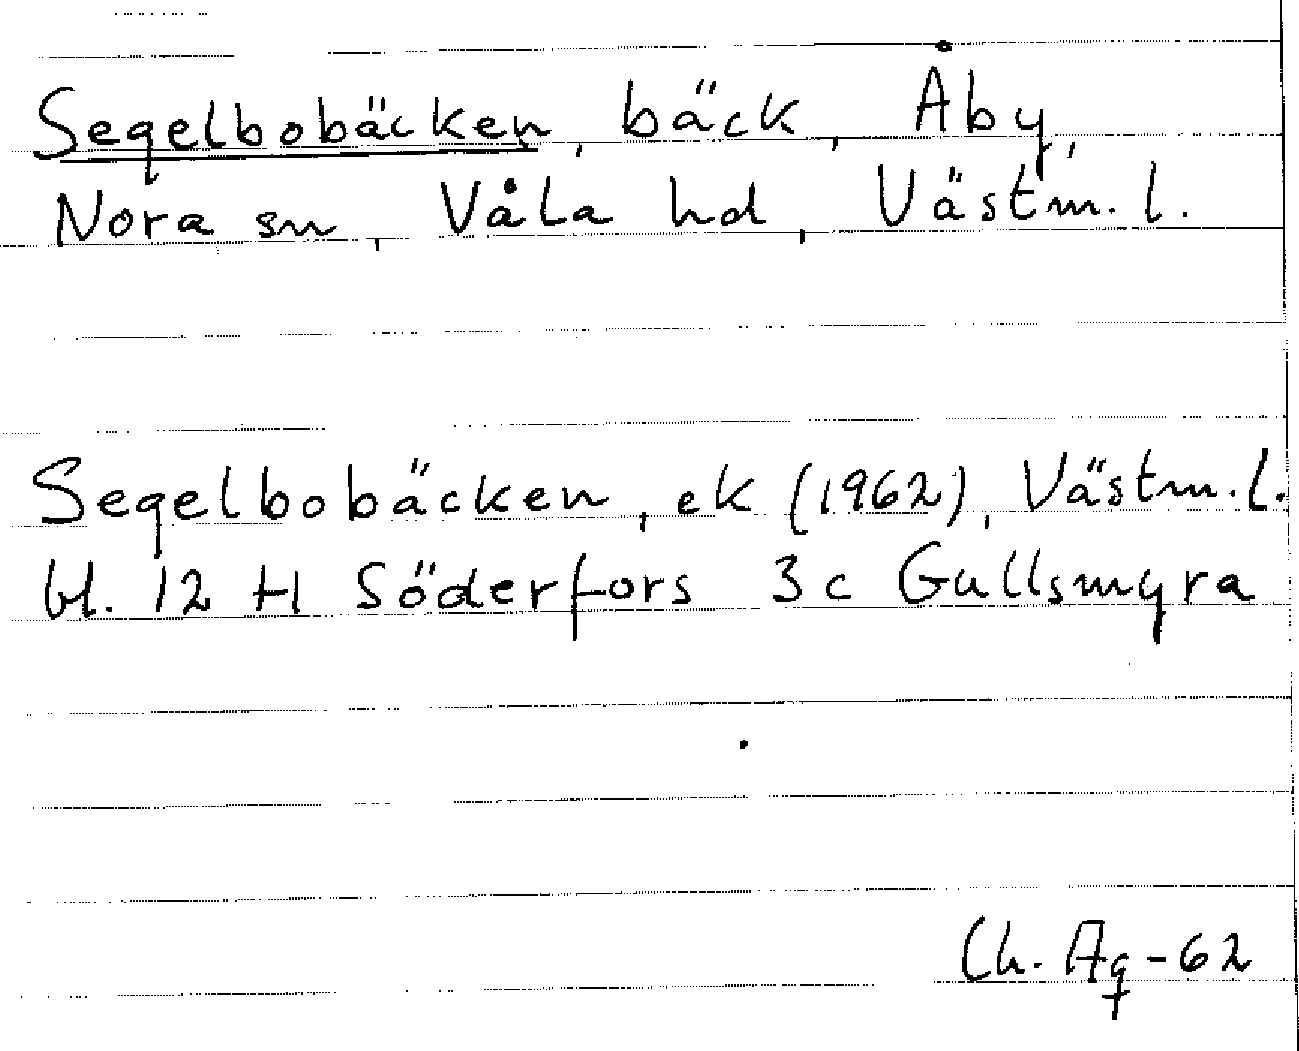 Segelbobäcken, bäck, Åby,
Nora sn, Våla hd, Västm. l.
Segelbobäcken, ek (1962), Västm. l.
bl. 12 H Söderfors 3c Gullsmyra
Ch. Ag-62